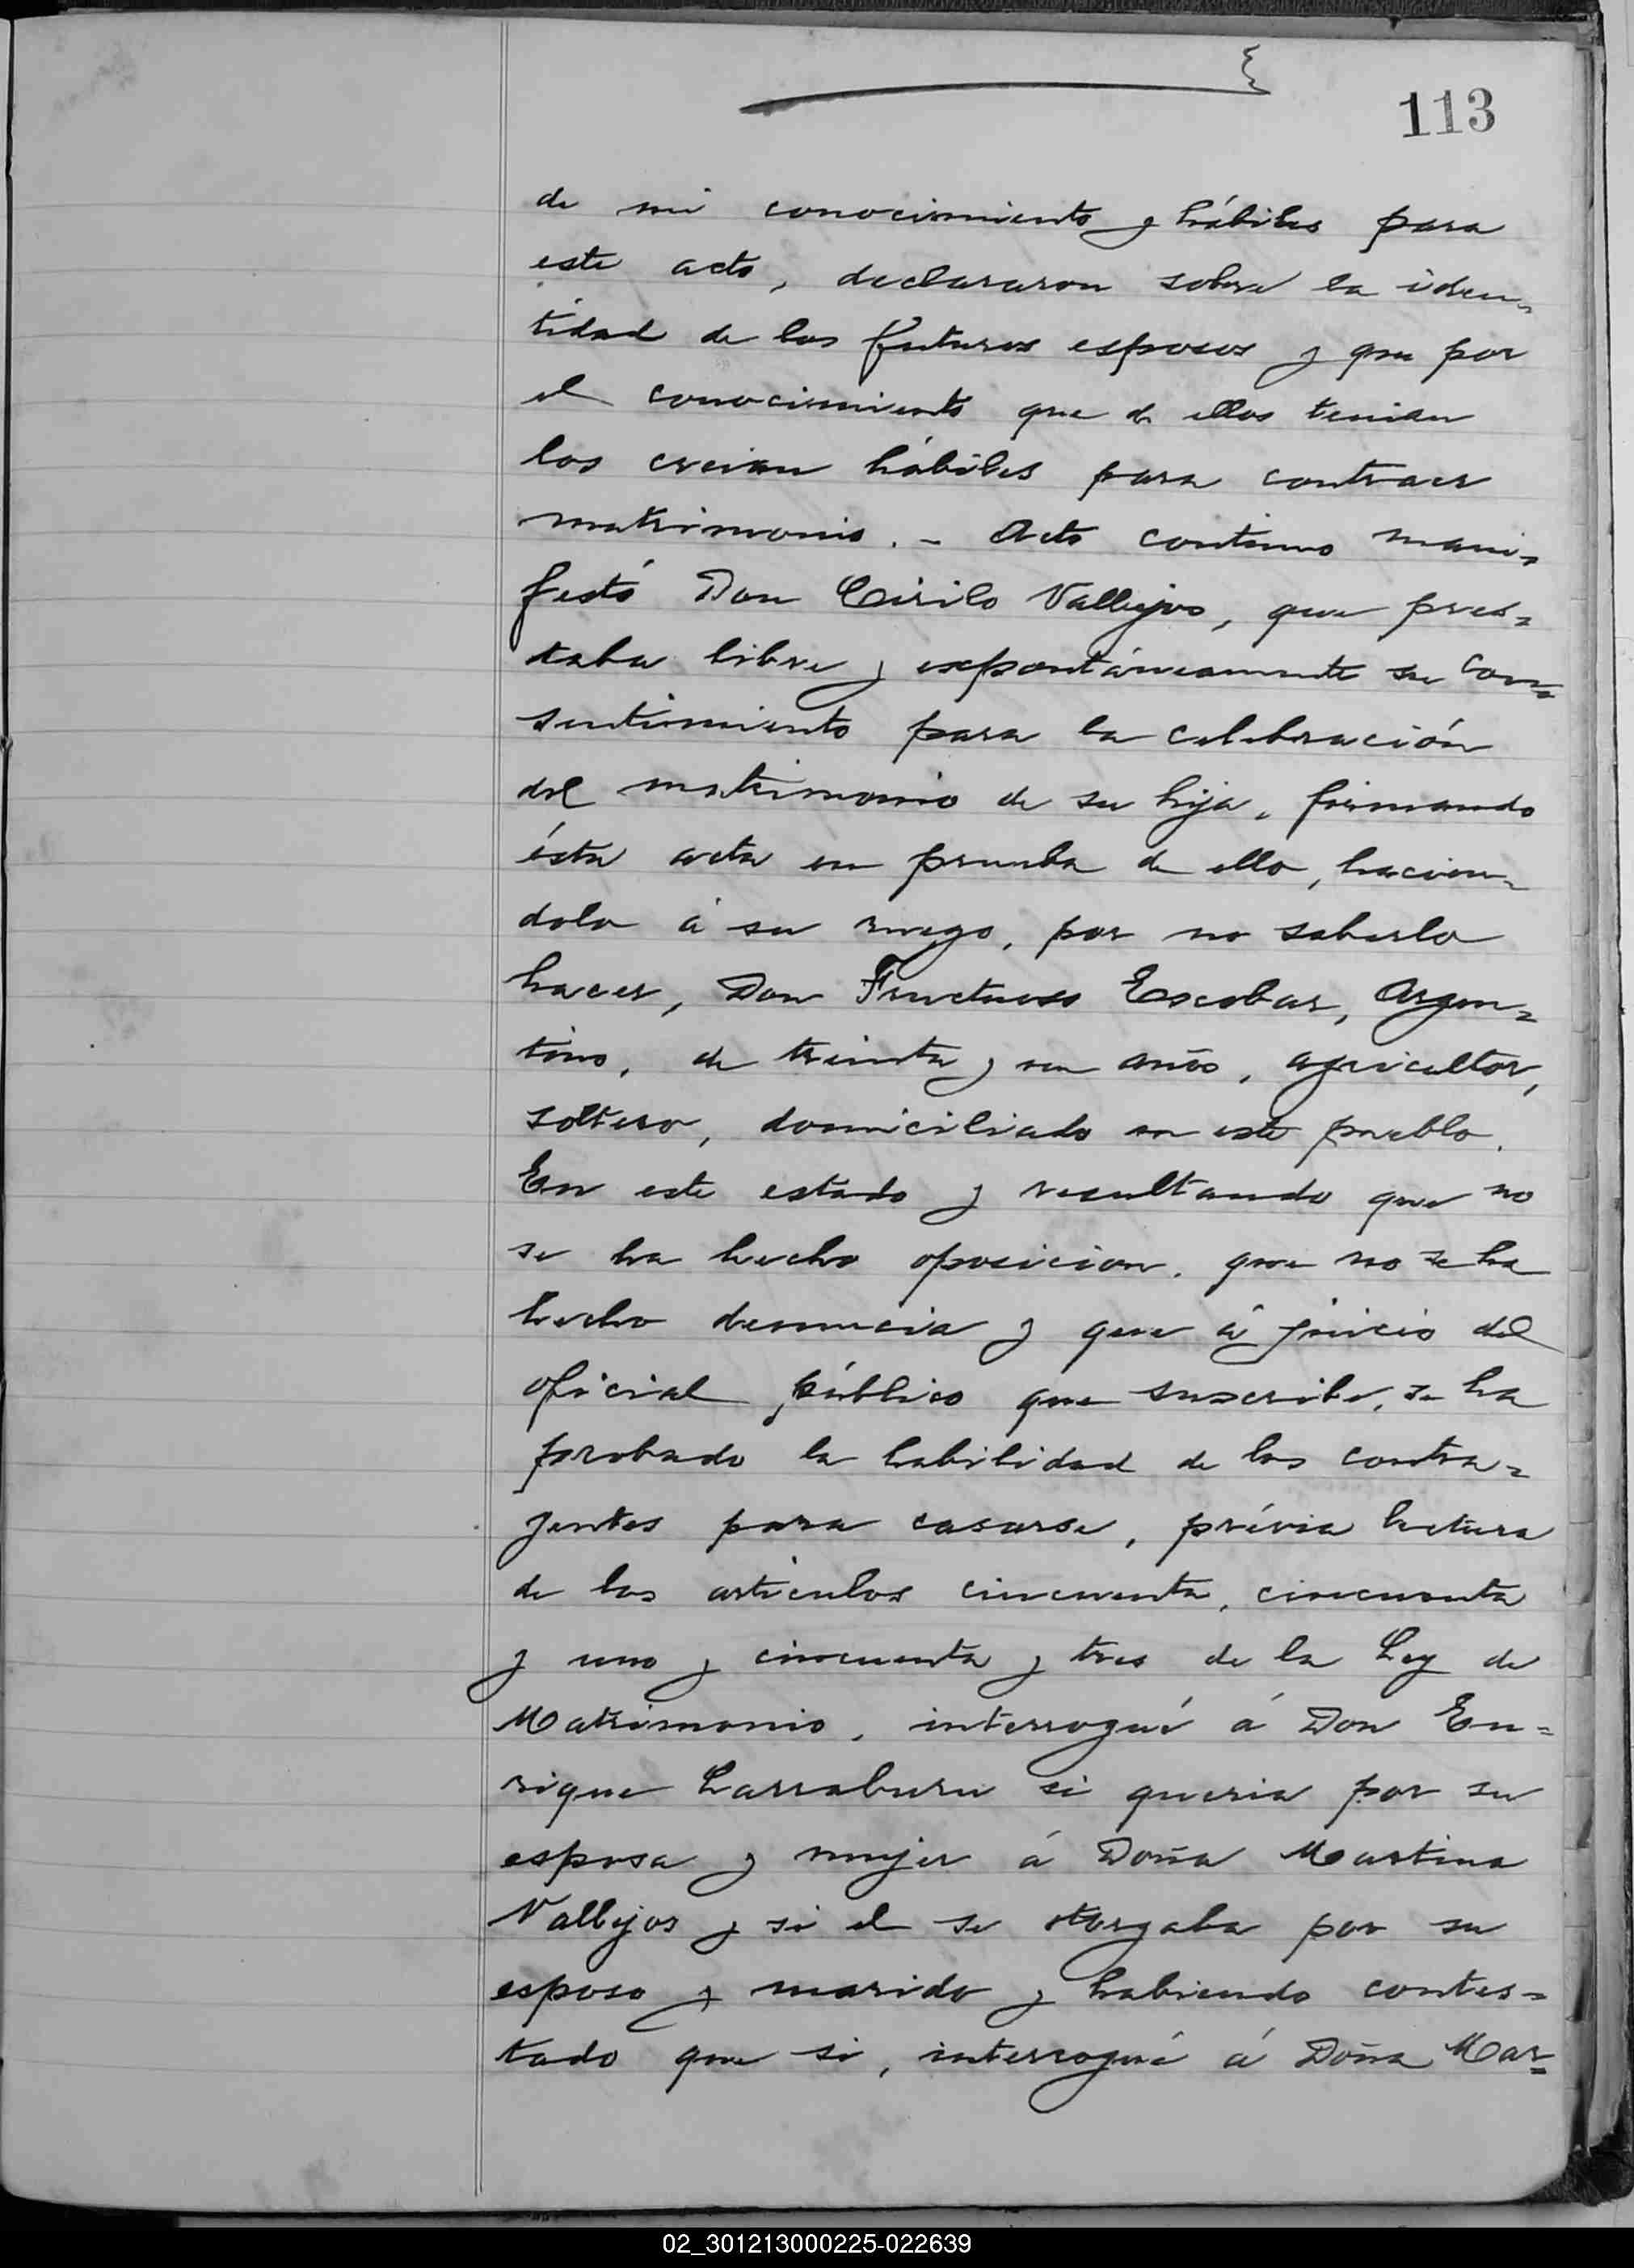 113
de mi conocimiento y hábiles para
este acto, declararon sobre la iden=
tidad de los futuros esposos y que por
el conocimiento que de ellos tenian
los creian hábiles para contraer
matrimonio. - Acto continuo mani=
festó Don Cirilo Vallejos, que pres=
taba libre y espontáneamente su con=
sentimiento para la celebración
del matrimonio de su hija, firmando
ésta acta en prueba de ello, hacien=
dolo á su ruego, por no saberlo
hacer, Don Fructuoso Escobar, Argen=
tino, de treinta y un años, agricultor,
soltero, domiciliado en este pueblo.
En este estado y resultando que no
se ha hecho oposicion, que no se ha
hecho denuncia y que á juicio del
oficial público que suscribe, se ha
probado la habilidad de los contra=
yentes para casarse, prévia lectura
de los articulos cincuenta, cincuenta
y uno y cincuenta y tres de la Ley de
Matrimonio, interrogué á Don En=
rique Larraburu si queria por su
esposa y mujer á Doña Martina
Vallejos y si el se otorgaba por su
esposo y marido y habiendo contes=
tado que si, interrogué á Doña Mar=
02_301213000225-022639